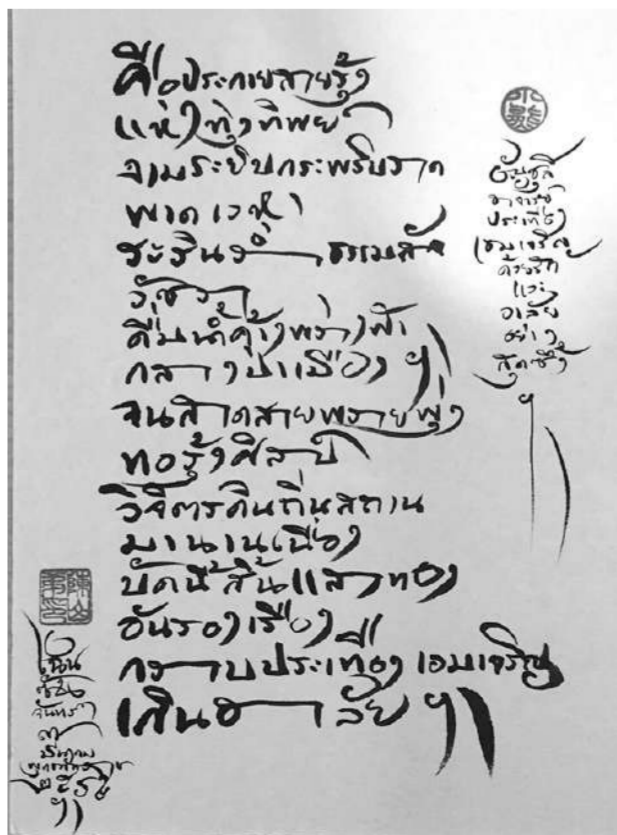 คือประกายสายรุ้ง
แห่งทุ่งทิพย์
งามระยิบกระพริบวาด
พาดเวหา
ชะรินร่ำ
ดื่มน้ำค้างพร่างฟ้า
กลางป่าเมือง ฯ
จนสาดสายพรายพุ่ง
ทอรุ้งศิลป์
วิจิตรดินถิ่นสถาน
มานานเนื่อง
บัดนี้สิ้นแสงทอง
อันรองเรือง
กราบประเทือง เอมเจริญ
เกินอาลัย ฯ
อัญชลี
อาจารย์
ประเทือง
เอมเจริญ
ด้วยรัก
และ
อาลัย
อย่าง
สุดซึ้ง
ฯ